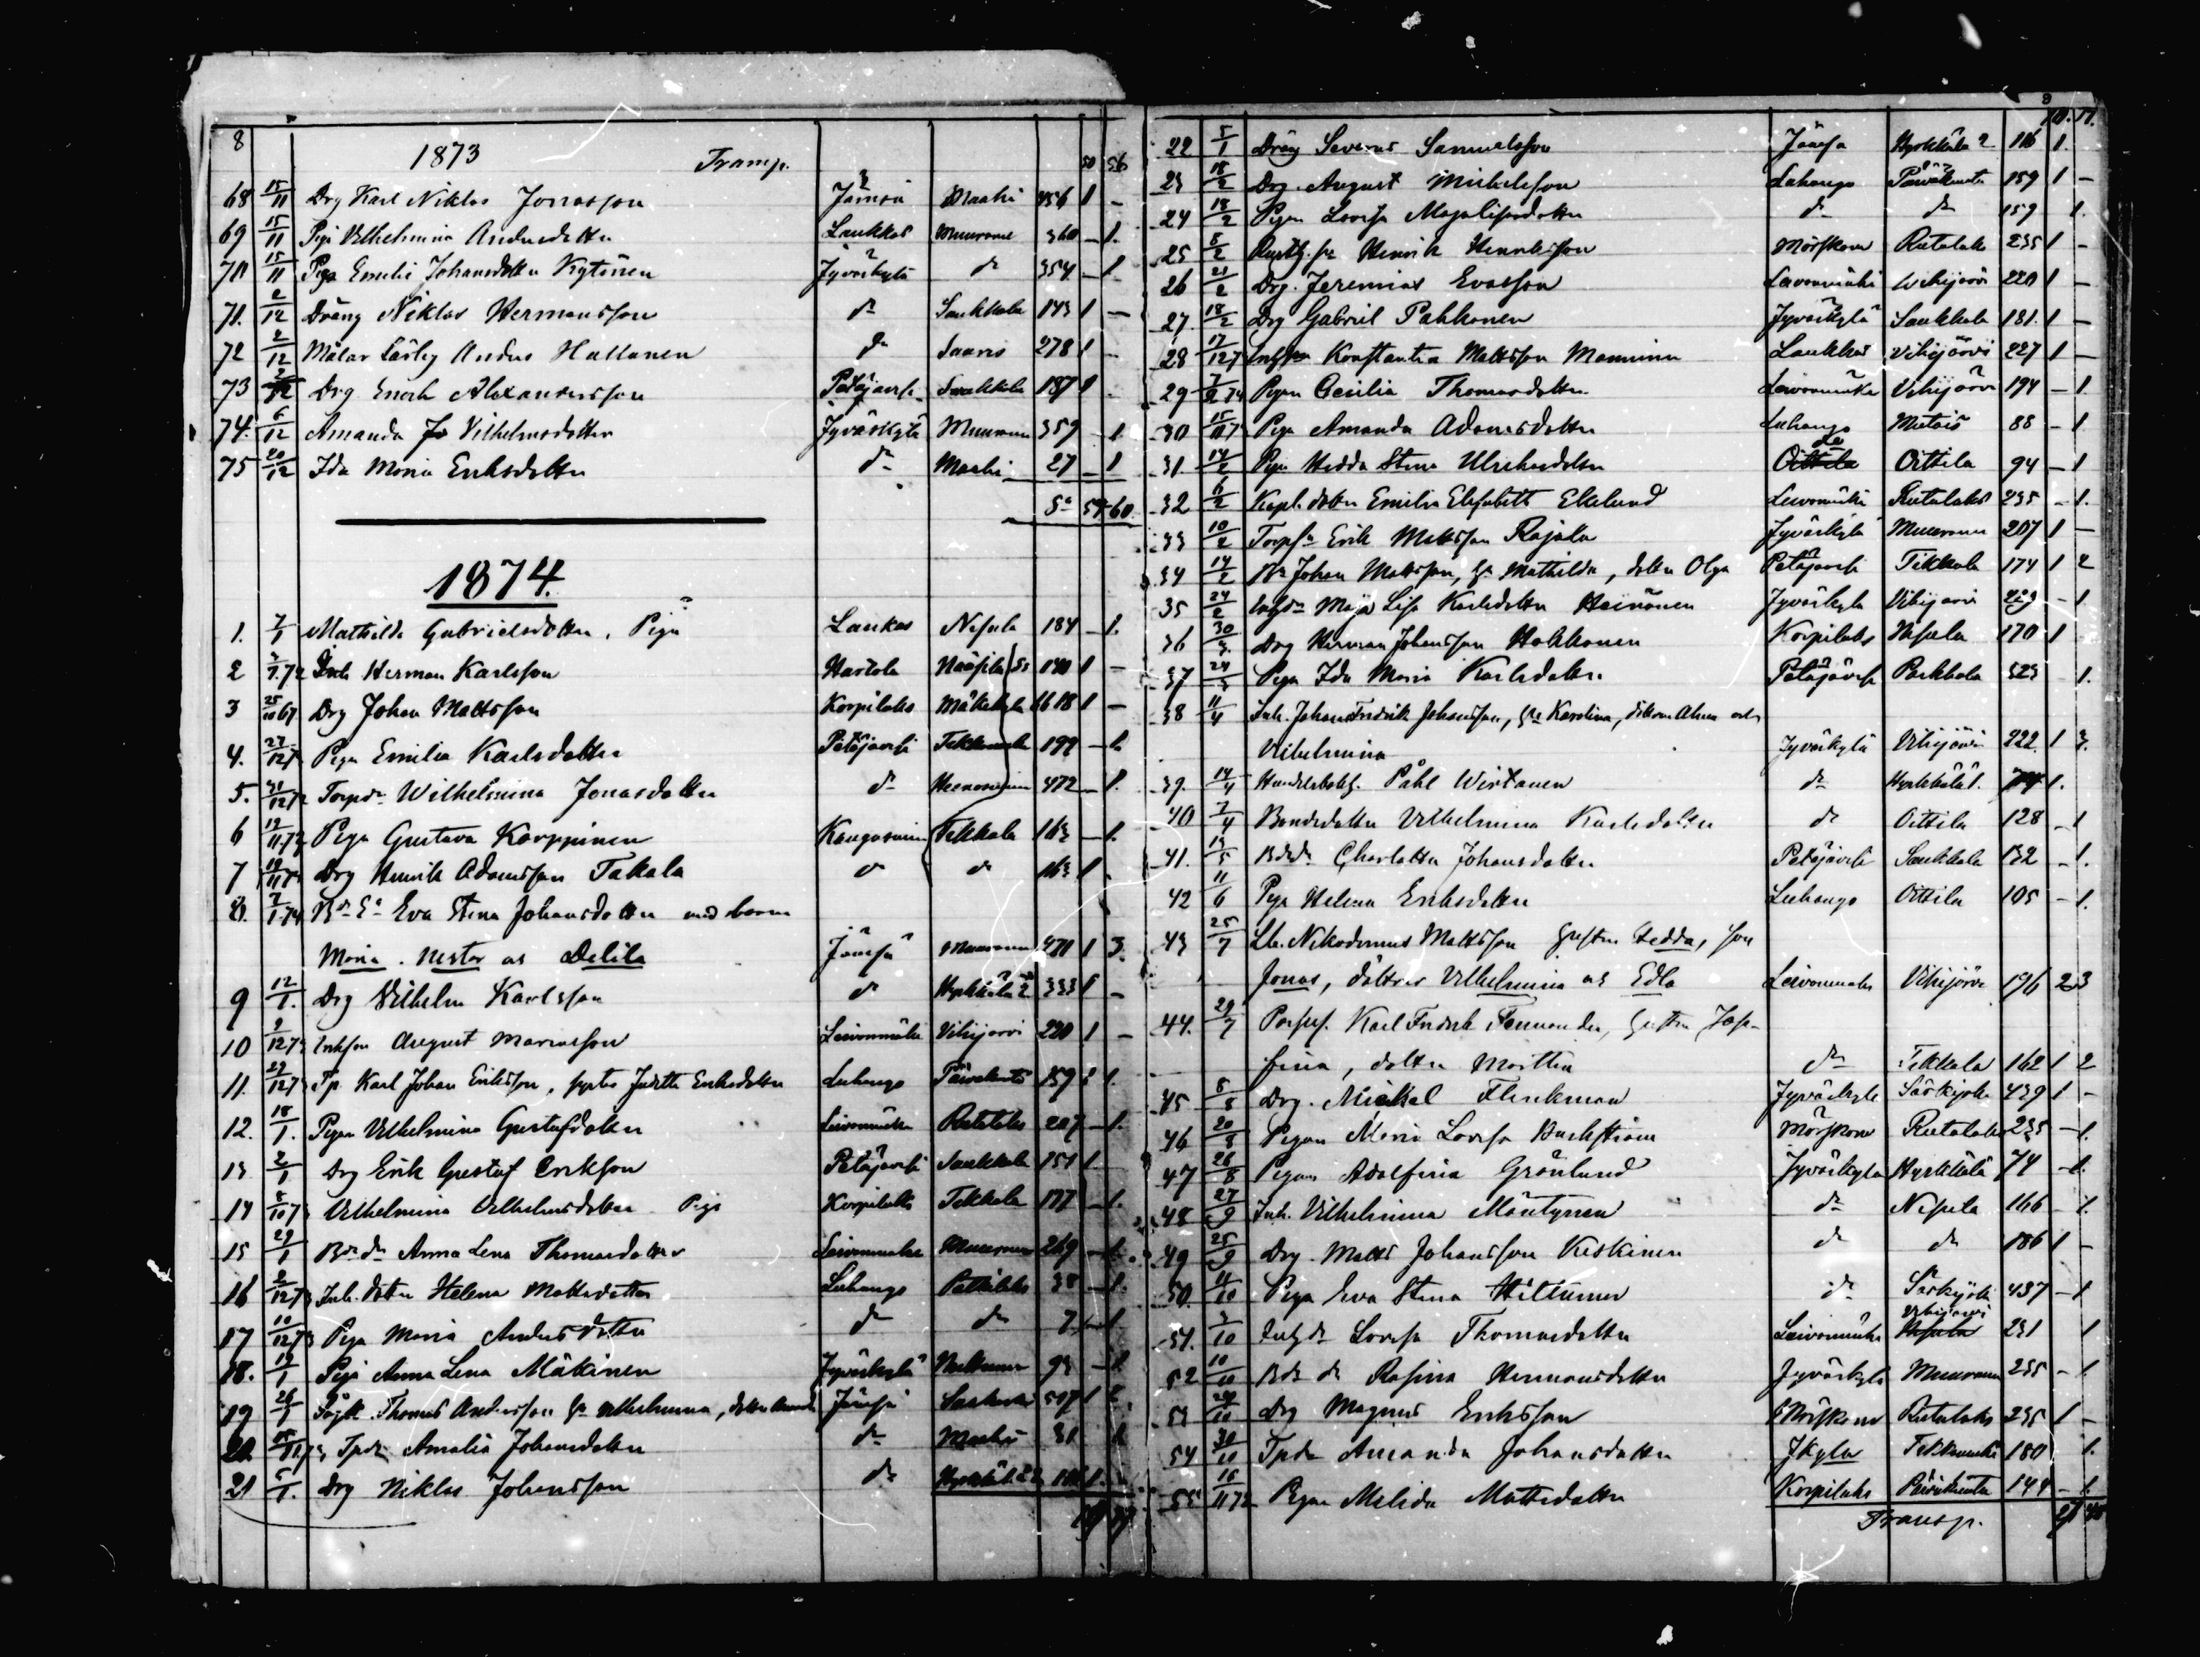 8 1873 Transp. 50 56
68 15/11 Drg Karl Niklas Jonasson Jämsä Maahi 456 1 -
69 15/11 Piga Vilhelmina Andersdotter Laukkas Muurame 360 - 1.
70 15/11 Piga Emilia Johansdotter Kytönen Jyväskylä do 354 - 1
71. 2/12 Dräng Niklas Hermansson do Saukkola 143 1 -
72 2/12 Målar Lärlig Anders Hallonen do Saaris 278 1 -
73 2/12 Drg Enoch Alexandersson Petäjävesi Saukkola 187 1
74. 6/12 Amanda Vilhelmsdotter Jyväskylä Muurame 359 - 1.
75 20/12 Ida Maria Eriksdotter do Maahi 27 - 1
Sa 54 60
1874.
1. 7/1 Mathilda Gabrielsdotter, Piga Laukas Nisula 184 - 1.
2 Herman Karlsson Hartola 1 -
3 Drg Johan Mattsson Korpilaks 618 1 -
4. 27/12 Pigan Emilia Karlsdotter Petäjävesi 192 - 1.
5. 31/12 Wilhelmina Jonasdotter do 472 - 1.
6 19/11.73 Piga Gustava Korppinen Kangasniemi Tikkala 163 - 1.
7 19/11 Drg Henrik Adamsson Takala do do 163 1
8. 7/1.74 Eva Stina Johansdotter med barn
Maria. Nestor os Delila Jämsä Muurame 471 1 3.
9 12/1. Drg Vilhelm Karlsson do Hyrkkälä 2 333 1 -
10 August Mariasson Leivonmäki Vihijärvi 220 1 -
11. Karl Johan Eriksson, Judith Eriksdotter Luhango Päiväkunta 159 1.
12. 18/1. Pigan Vilhelmina Gustafsdotter Leivonmäki Rutalaks 227 - 1.
13 2/1 Drg Erik Gustaf Eriksson Petäjävesi Saukkola 151 1
14 Vilhelmina Vilhelmsdotter Piga Korpilaks Tikkala 177 - 1.
15 29/1 Anna Lena Thomasdotter Leivonmäki Muurame 269 - 1.
16 Inh. dotter Helena Mattsdotter Luhango 38 - 1.
17 Piga Maria Andersdotter do do 7 - 1
18. 19/1 Piga Anna Lena Mäkinen Jyväskylä 93 - 1.
19 Thomas Andersson Vilhelmina, dotter Jämsä 507 1 2
20 Amalia Johansdotter do Maahi 31 1
21 5/1. Drg Niklas Johansson do 1.
22 5/1 Dräng Severus Samuelsson Jämsä Hyrkkälä 2 116 1
23 18/2 Drg. August Mickelsson Luhango Päiväkunta 159 1 -
24 18/2 Pigan Lovisa Majalisasdotter do do 159 - 1.
25 8/2 Henrik Henriksson Mörskom Rutalaks 235 1 -
26 21/2 Drg. Jeremias Evasson Leivonmäki Vihijärvi 220 1 -
27. 18/2 Drg Gabriel Pahkonen Jyväskylä Saukkola 131. 1 -
28 Konstantin Mattsson Manninen Laukkas Vihijärvi 227 1 -
29 Pigan Cecilia Thomasdotter Leivonmäki Vihijärvi 194 - 1.
30 Piga Amanda Adamsdotter Luhango Mutais 88 - 1.
31 14/2 Pigan Hedda Stina Ulriksdotter Oittila Oittila 94 - 1
32. 6/2 Kapl. dotter Emilia Elisabeth Ekelund Leivonmäki Rutalaks 235 - 1.
33 10/2 Erik Mattsson Rajala Jyväskylä Muurame 207 1 -
34 14/2 Johan Mattsson, Mathilda, dotter Olga Petäjävesi Tikkala 174 1 2
35 24/2 Maja Lisa Karlsdotter Heinonen Jyväskylä Vihijärvi 229 - 1
36 30/3. Drg Herman Johansson Hokkonen Korpilaks Nisula 170 1
37 24/3 Piga Ida Maria Karlsdotter Petäjävesi 323 1.
38 11/4 Inh. Johan Fredrik Johansson, Karolina, Alma och
Vilhelmina Jyväskylä Vihijärvi 222. 1 3.
39. 14/4 Påhl Wirtanen do Hyrkkälä 1. 74 1.
40 7/4 Bondedotter Vilhelmina Karlsdotter do Oittila 128 - 1
41. Charlotta Johansdotter Petäjävesi Saukkola 132 - 1.
42 11/6 Piga Helena Eriksdotter Luhango Oittila 105 - 1.
43 25/7 Nikodemus Mattsson hustru Hedda, son
Jonas, döttrar Vilhelmina os Edla Leivonmäki Vihijärvi 196 2 3
44. 29/7 Karl Fredrik Fernander, hustru Jose-
fina, dotter Martha do Tikkala 162 1 2
45 8/8 Drg. Mickel Flinkman Jyväskylä Särkijoki 439 1 -
46 20/8 Pigan Maria Lovisa Backström Mörskom Rutalaks 235 - 1.
47 26/8 Pigan Adolfina Grönlund Jyväskylä Hyrkkälä 74 - 1.
48 27/9 Inh. Vilhelmina Mäntynen do Nisula 166 - 1.
49 25/9 Drg. Matts Johansson Keskinen do do 186 1 -
50. 11/10 Piga Eva Stina Hiltunen do Särkijoki 437 - 1
51. 3/10 Lovisa Thomasdotter Leivonmäki Vihijärvi 231 1
52 10/10 Rosina Hermansdotter Jyväskylä Muurame 235 - 1
53 24/10 Drg Magnus Eriksson Mörskom Rutalaks 235 1 -
54 30/10 Amanda Johansdotter Jkyla 180 1.
55 Pigan Melida Mattsdotter Korpilaks Päiväkunta 144 - 1.
Transp.